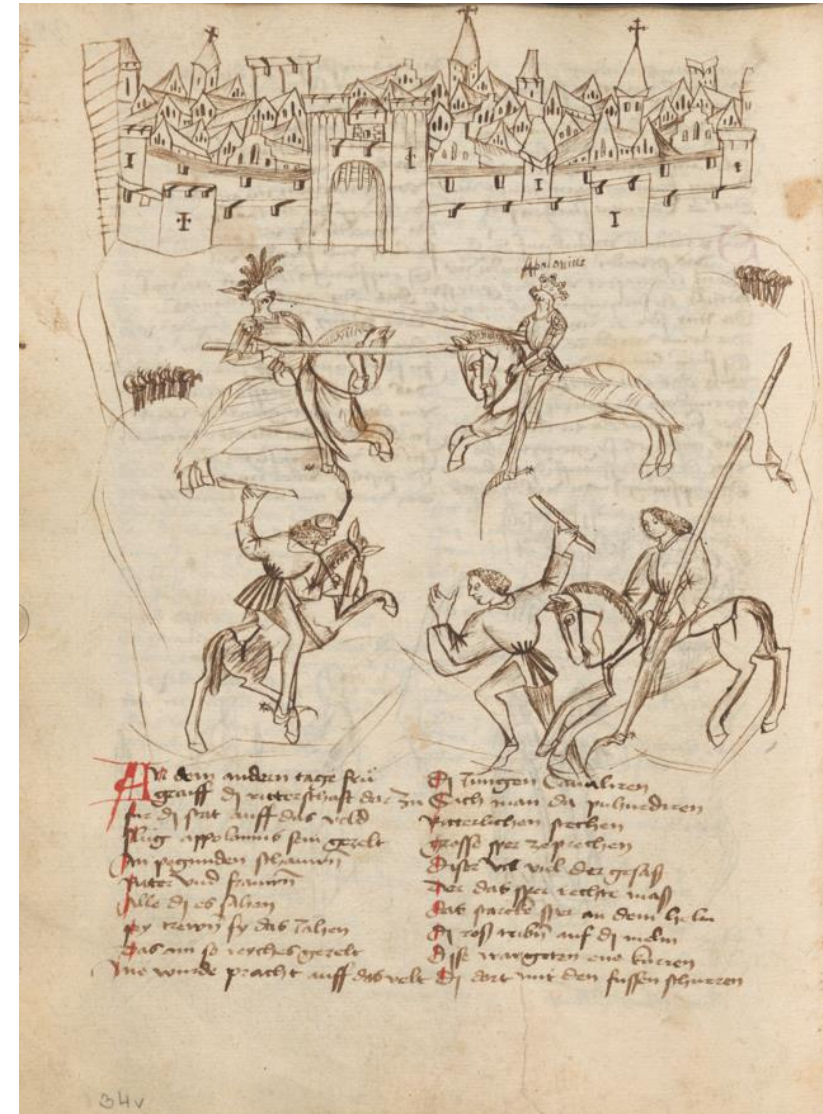 Appolonius
An dem andern tage fru
graiff dj ritterschaft dar zu
fur dj stat auff das veld
slug appolonius sein gezelt
Pater vnd frawn
Alle dj es sahen
sy das iahen
Das nie so reyches gezelt
Nie wurde pracht auff das velt
Dj iungen Caualiren
Sach man da puhurdiren
Ritterlichen stechen
grosse sper zeprechen
Diser viel vnd der gesaß
Der das sper rechte maß
Das starcke sper an dem helm
Dj roß auf dj melm
Dise
Dj dort mit den fussen schurren
34v